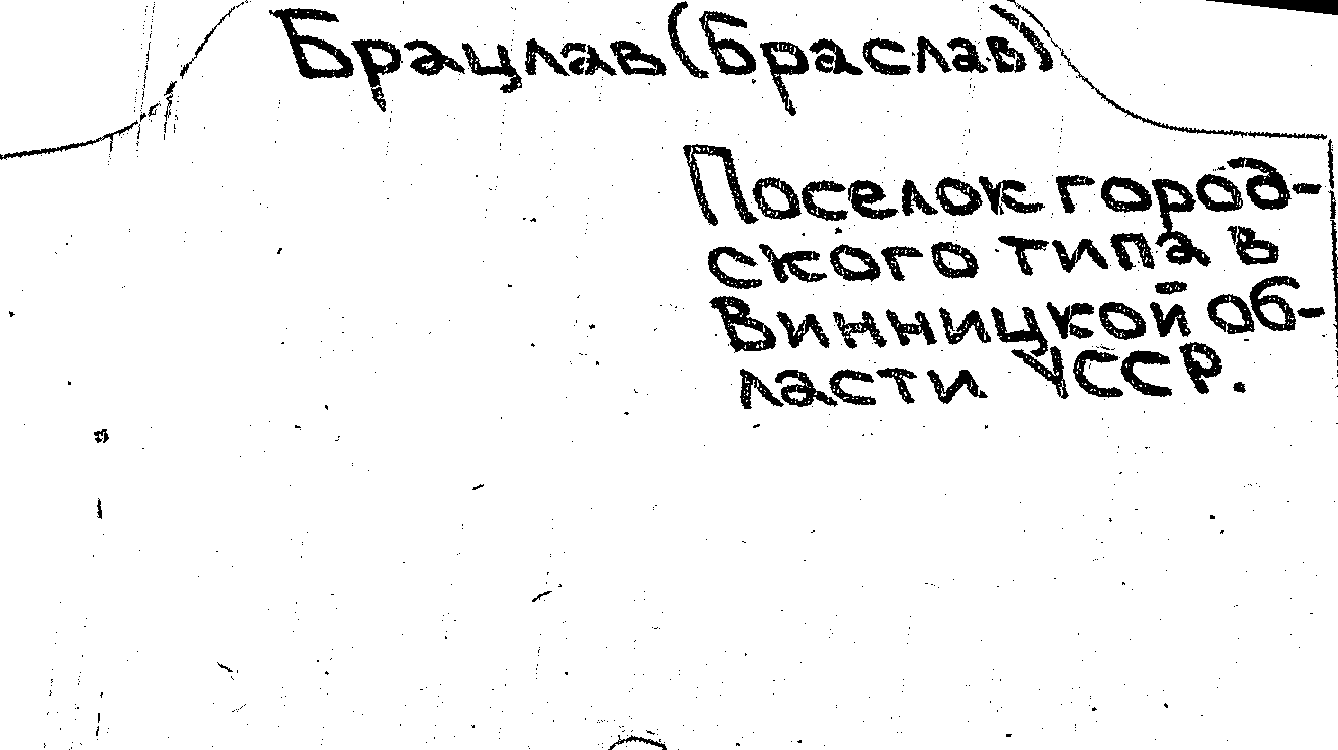 Брацлав (Браслав)
Поселок город-
ского типа в
Винницкой об-
ласти УССР.